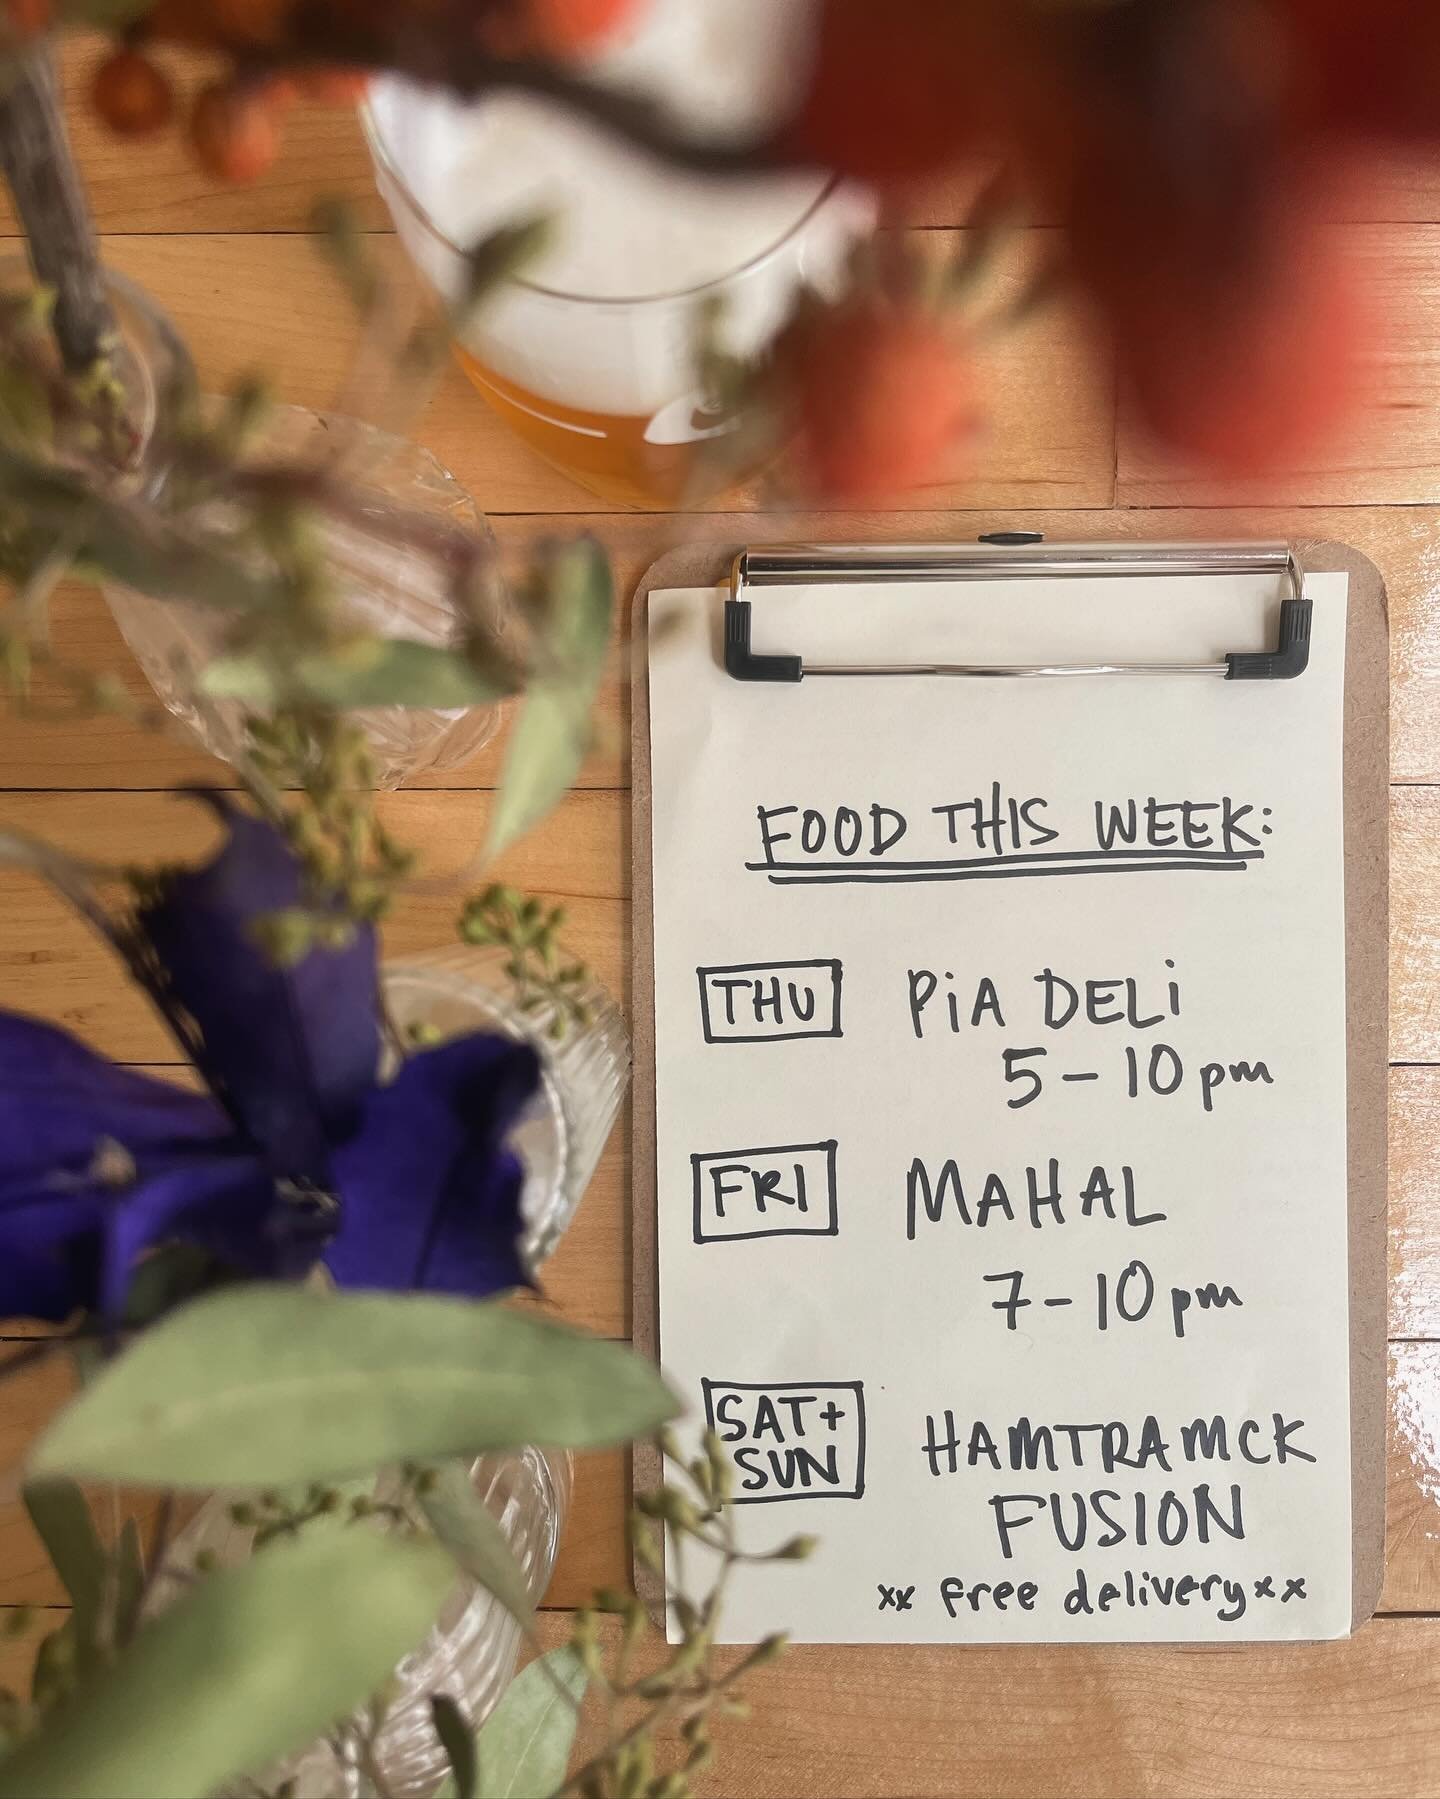 FOOD THIS WEEK:
THU PiA DELi
5-10 pm
FRI MAHAL
7-10 pm
SAT+
SUN
HAMTRAMCK
FUSION
xx free delivery xx